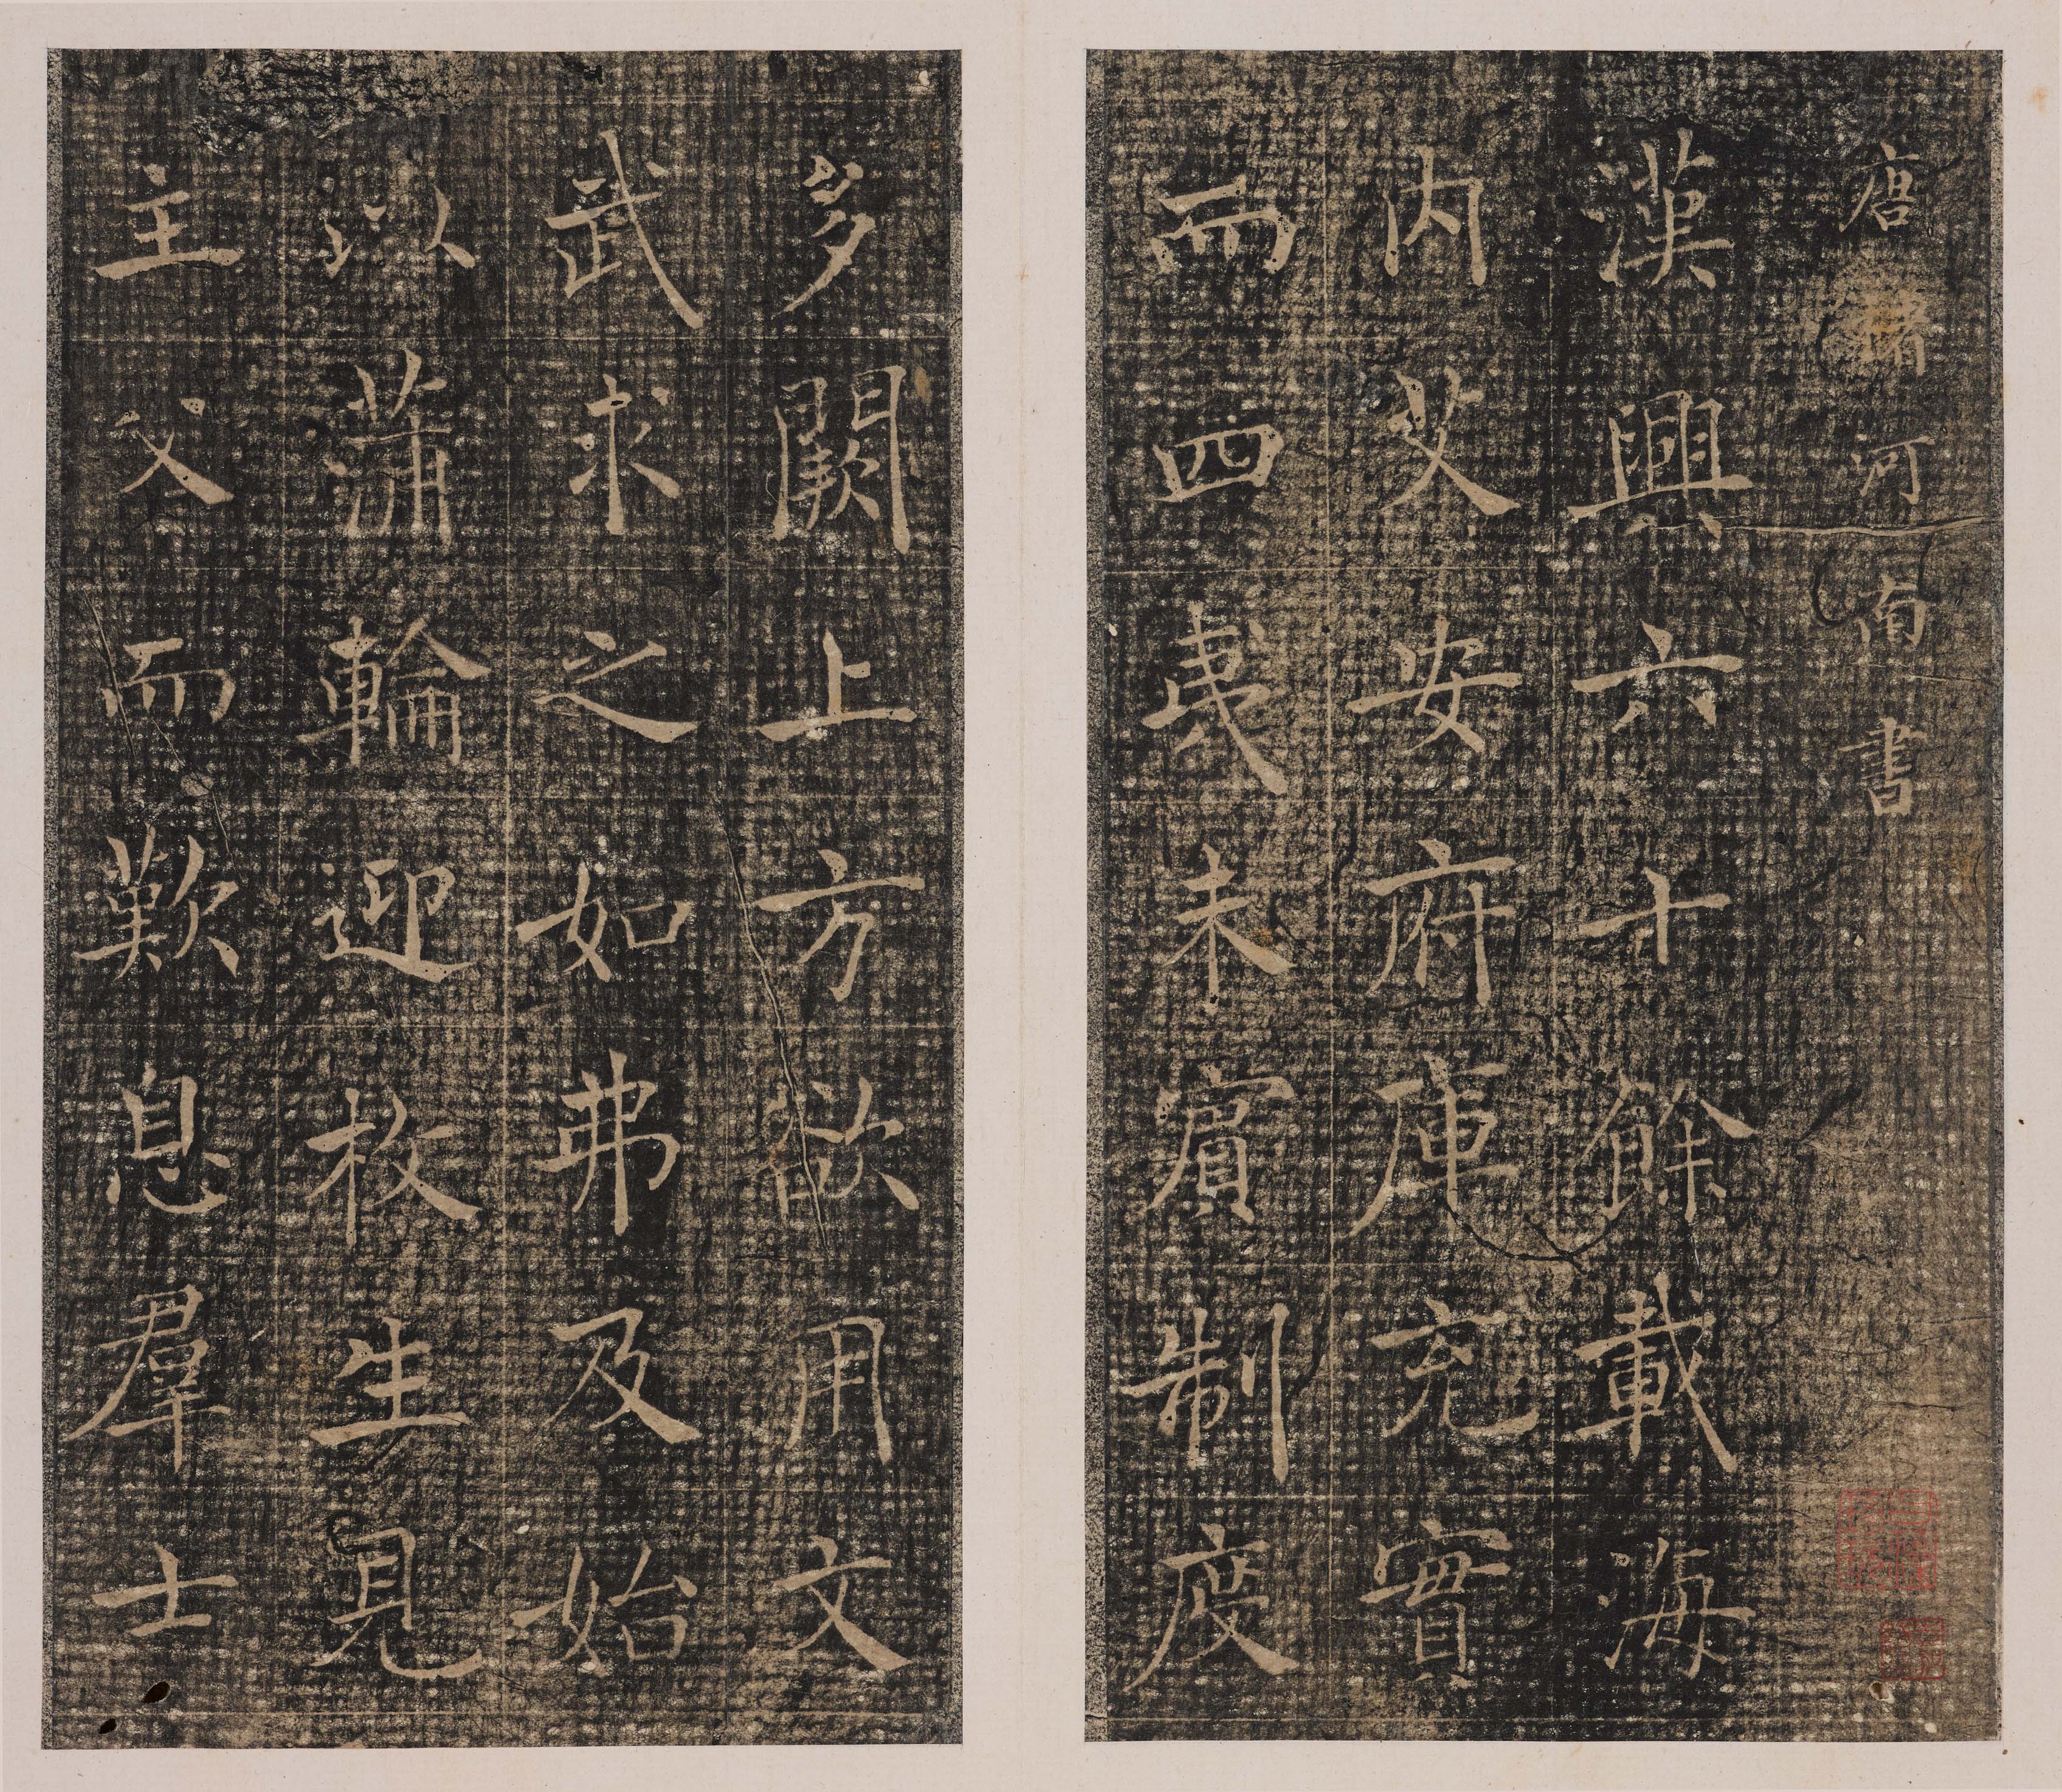 唐褚河南書
漢興六十餘載海
内艾安府庫充實
而四夷未賔制度
多闕上方欲用文
武求之如弗及始
以蒲輪迎枚生見
主父而歎息羣士